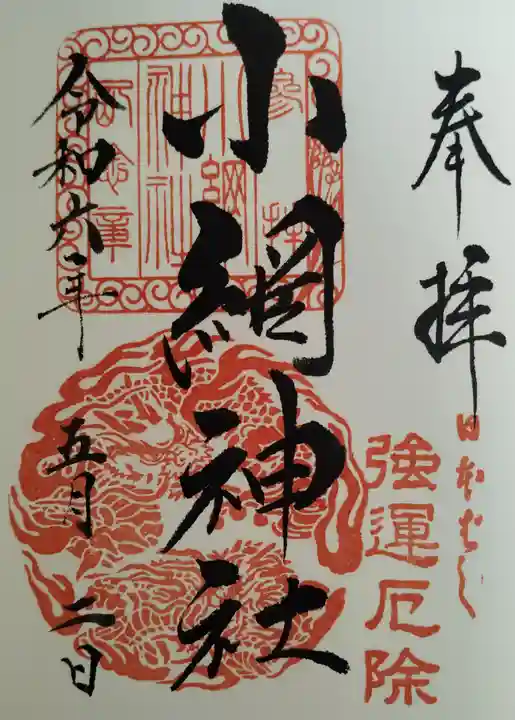 奉拝
日本ばし
強運厄除
小網神社
参拝
小網
神社
記念章
令和六年
五月二日